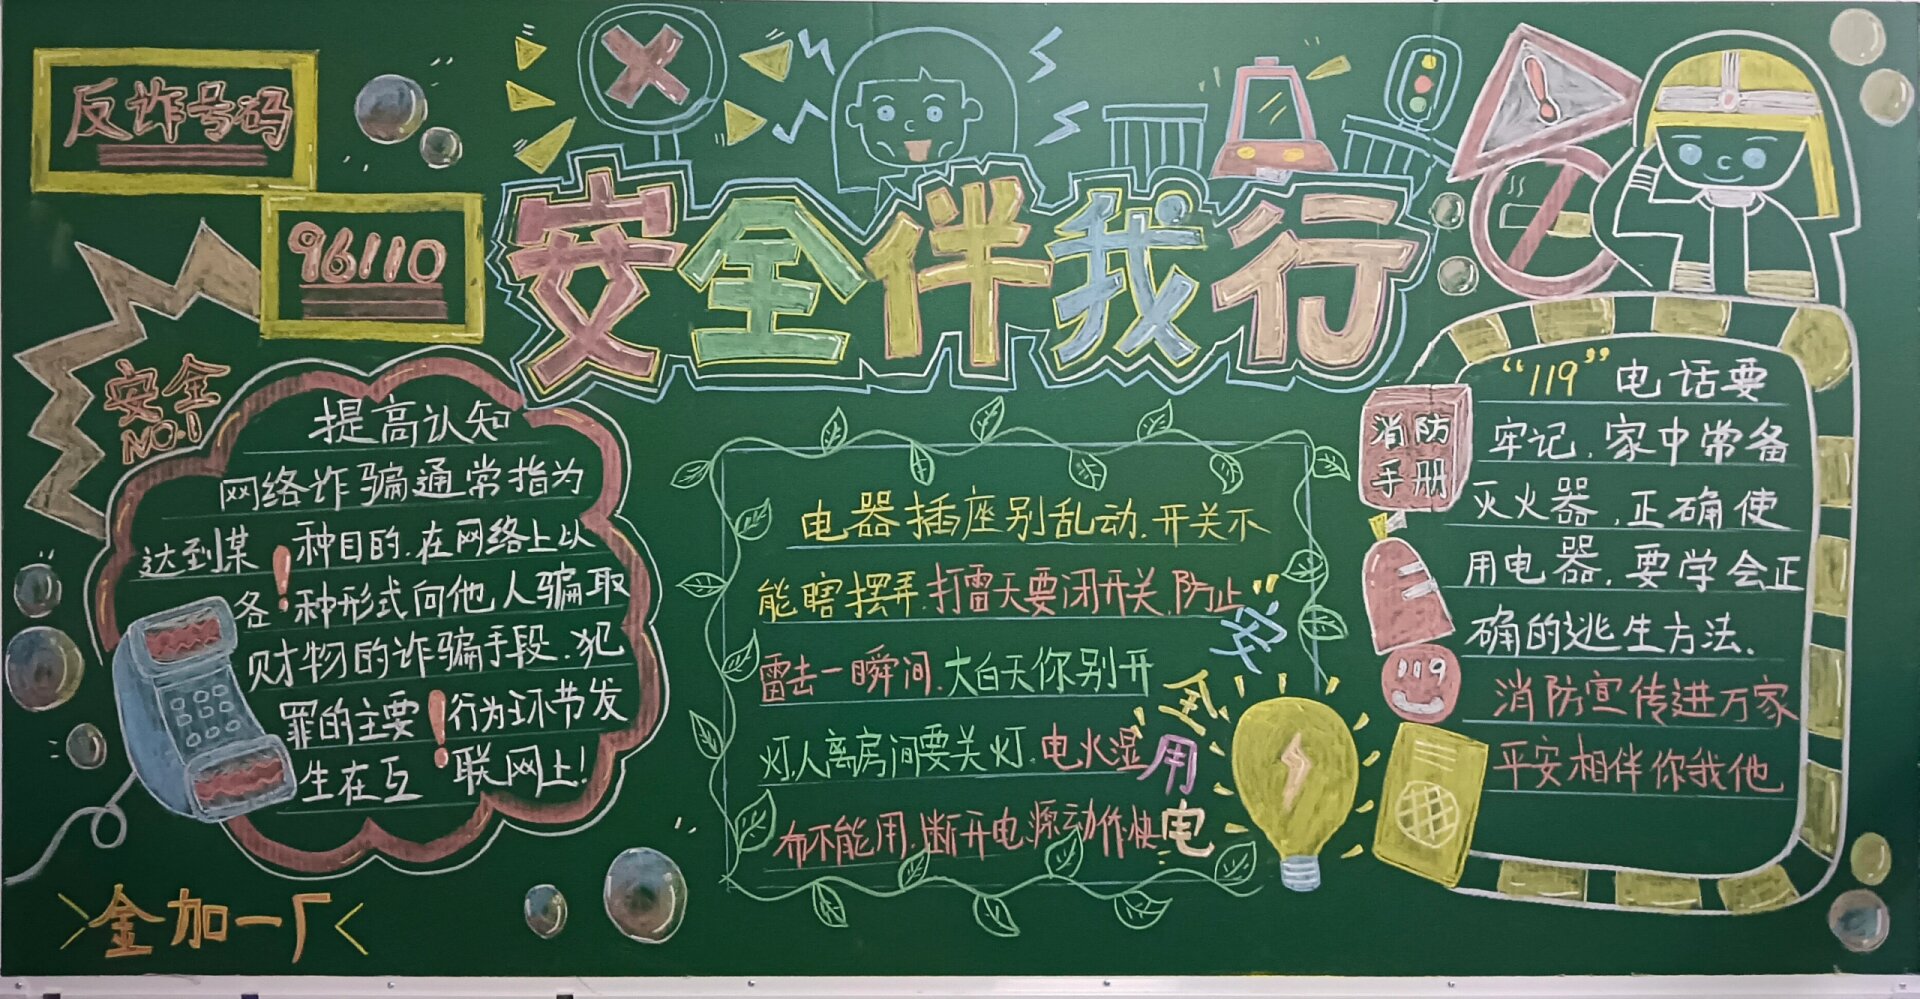 反诈号码
96110
安全伴我行
安全
NO.1
提高认知
网络诈骗通常指为
达到某!种目的.在网络上以
各!种形式向他人骗取
财物的诈骗手段.犯
罪的主要!行为环节发
生在互!联网上!
金加一厂
电器插座别乱动.开关不
能瞎摆弄.打雷天要闭开关,防止
雷击一瞬间.大白天你别开
灯.人离房间要关灯.电火湿
布不能用.断开电源动作快
"安全用电
消防
手册
119
"119"电话要
牢记,家中常备
灭火器,正确使
用电器,要学会正
确的逃生方法.
消防宣传进万家
平安相伴你我他